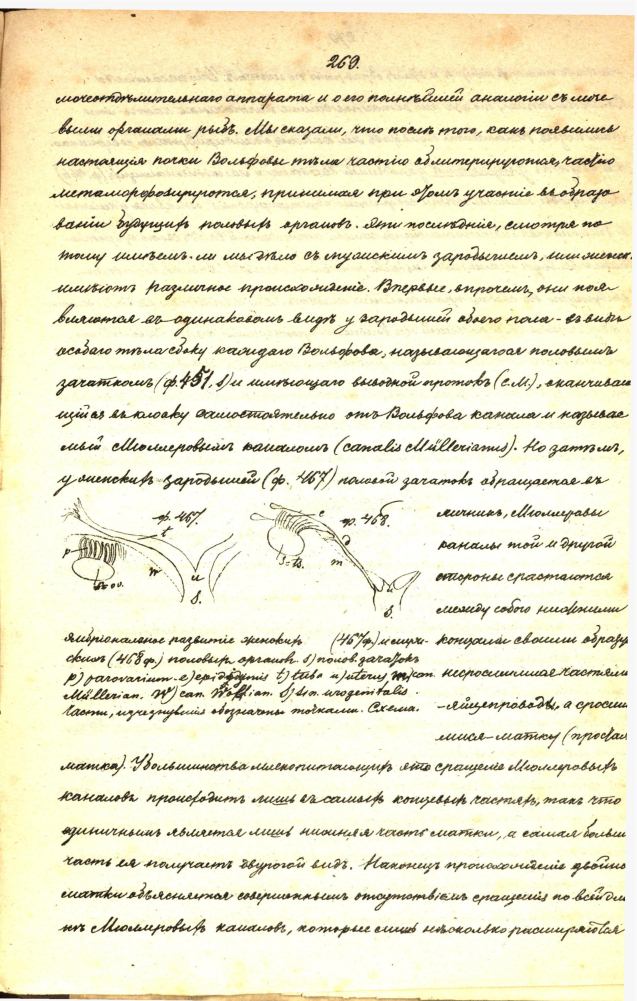 269.
мочеотдѣлительнаго аппарата и о его полнѣйшей аналогіи съ моче
выми органами рыбъ. Мы сказали, что послѣ того, какъ появились
настоящія почки Вольфовы тѣла частію облитерируются, частію
метаморфозируются, принимая при этомъ участіе въ образо
ваніи будущихъ половыхъ органовъ. Эти послѣдніе, смотря по
тому имѣемъ-ли мы дѣло съ мужскимъ зародышемъ, или женск.
имѣютъ различное происхожденіе. Впервые, впрочемъ, они поя
вляются въ одинаковомъ видѣ у зародышей обоего пола - въ видѣ
особаго тѣла сбоку каждаго Вольфова, называющагося половымъ
зачаткомъ (ф. 451, s) и имѣющаго выводной протокъ (с.М.), оканчиваю
щійся въ клоаку самостоятельно отъ Вольфова канала и называе
мый Мюллеровымъ каналомъ (canalis Müllerianus). Но затѣмъ,
у женскихъ зародышей (ф. 467) половой зачатокъ обращается въ
ф. 467.
t
p
s=ov.
w
u
S.
e
ф. 468.
d
s=ts.
m
S.
яичникъ, Мюллеровы
каналы той и другой
стороны срастаются
между собою нижними
концами своими образу
несросшимися частями
-яйцепроводы, а сросши
мися-матку (простая
Эмбріональное развитіе женскихъ (467ф.) и мужс-
кихъ (468 ф.) половыхъ органовъ. s) полов. зачатокъ
p) parovarium. e) epididymis t) tuba u) uterus. m) can.
Müllerian. w) can. Wolffian. S) sin. urogenitalis.
Части, изчезнувшія обозначены точками. Схема.
матка). У большинства млекопитающихъ это сращеніе Мюллеровыхъ
каналовъ происходитъ лишь въ самыхъ концевыхъ частяхъ, такъ что
одиничнымъ является лишь нижняя часть матки, а самая больш
часть ея получаетъ двурогой видъ. Наконецъ происхожденіе двойно
матки объясняется совершеннымъ отсутствіемъ сращенія по всей дли
нѣ Мюллеровыхъ каналовъ, которые лишь нѣсколько расширяются